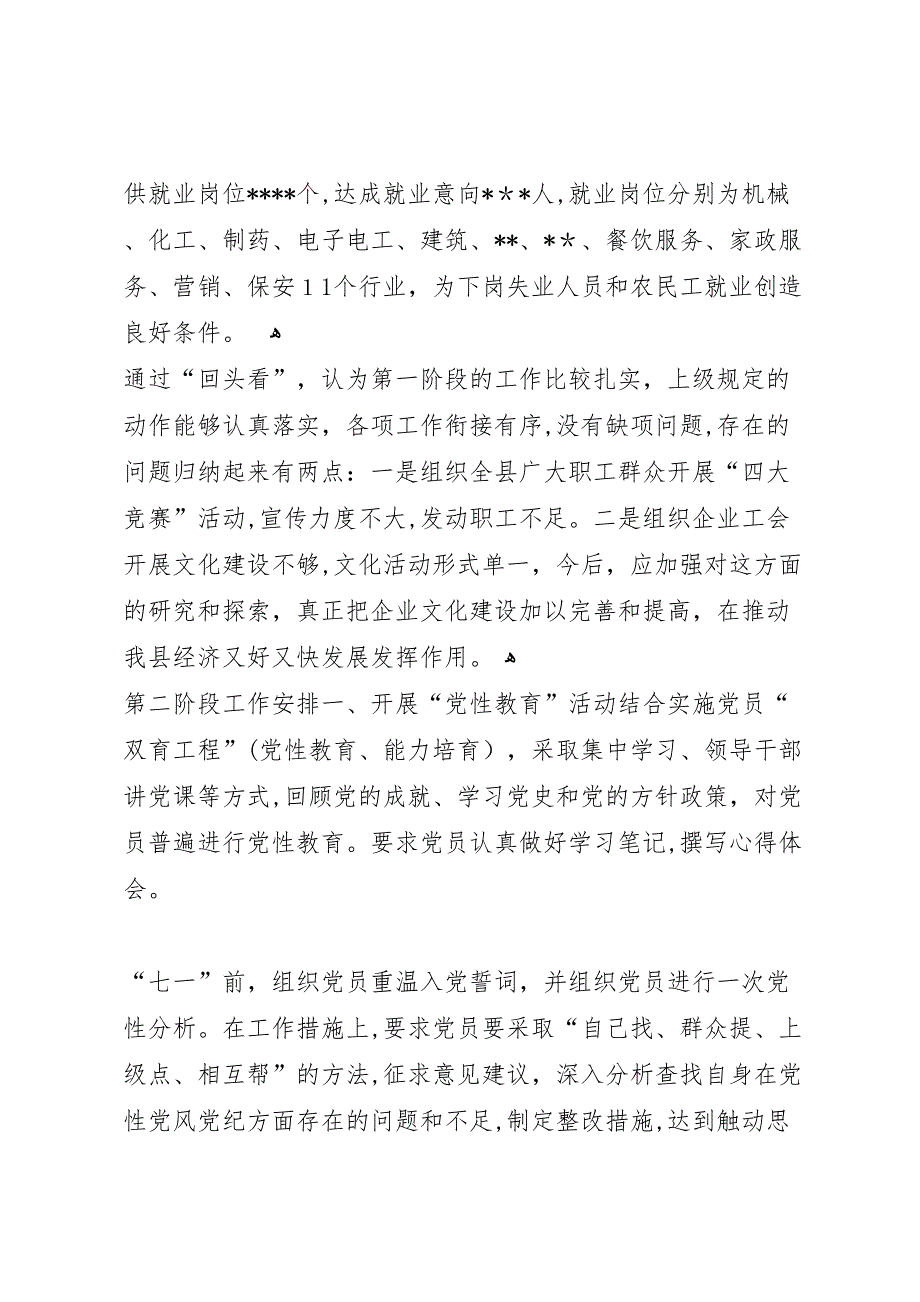 供就业岗位****个,达成就业意向*＊*人,就业岗位分别为机械
、化工、制药、电子电工、建筑、**、*＊、餐饮服务、家政服
务、营销、保安１1个行业，为下岗失业人员和农民工就业创造
良好条件。 ﻫ
通过“回头看”，认为第一阶段的工作比较扎实，上级规定的
动作能够认真落实，各项工作衔接有序,没有缺项问题,存在的
问题归纳起来有两点：一是组织全县广大职工群众开展“四大
竞赛”活动,宣传力度不大,发动职工不足。二是组织企业工会
开展文化建设不够,文化活动形式单一，今后，应加强对这方面
的研究和探索，真正把企业文化建设加以完善和提高，在推动
我县经济又好又快发展发挥作用。 ﻫ
第二阶段工作安排一、开展“党性教育”活动结合实施党员“
双育工程”(党性教育、能力培育），采取集中学习、领导干部
讲党课等方式,回顾党的成就、学习党史和党的方针政策，对党
员普遍进行党性教育。要求党员认真做好学习笔记,撰写心得体
会。
“七一”前，组织党员重温入党誓词，并组织党员进行一次党
性分析。在工作措施上,要求党员要采取“自己找、群众提、上
级点、相互帮”的方法,征求意见建议，深入分析查找自身在党
性党风党纪方面存在的问题和不足,制定整改措施,达到触动思